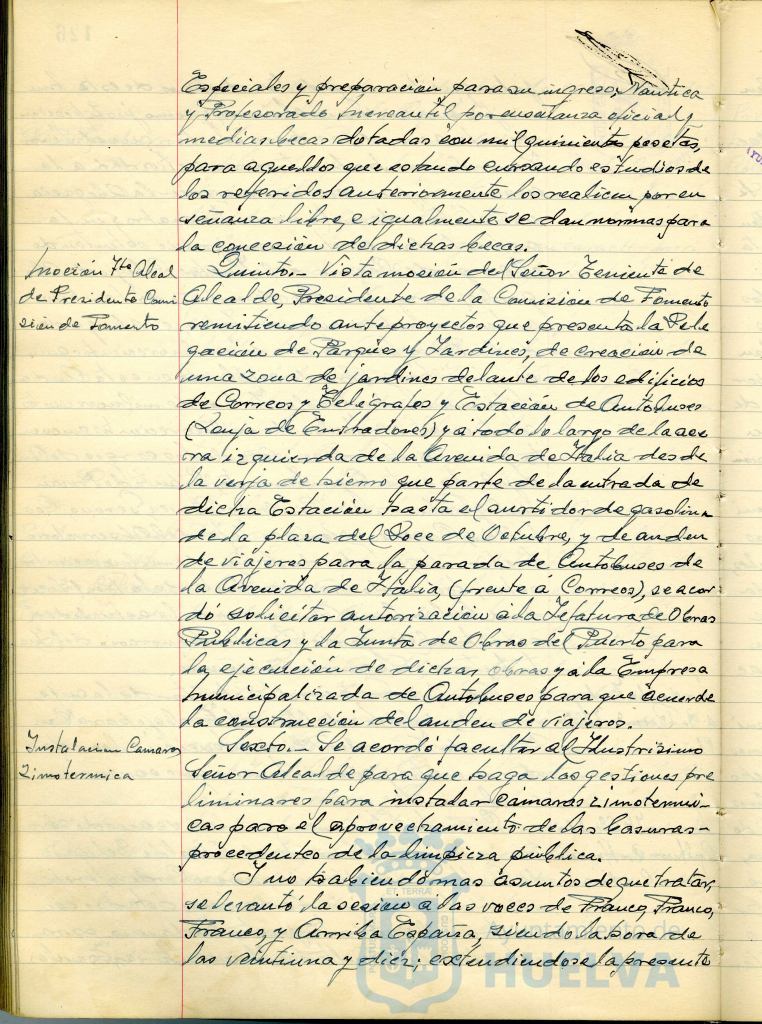 Especiales y preparación para su ingreso, Náutica
y Profesorado Mercantil por enseñanza oficial y
medias becas dotadas con mil quinientas pesetas,
para aquellos que estando cursando estudios de
los referidos anteriormente los realicen por en
señanza libre, e igualmente se dan normas para
la concesión de dichas becas.
Moción Tte Alcal
de Presidente Comi
sión de Fomento
Quinto.- Vista moción del Señor Teniente de
Alcalde, Presidente de la Comisión de Fomento
remitiendo anteproyectos que presenta la Dele
gación de Parques y Jardines, de creación de
una zona de jardines delante de los edificios
de Correos y Telégrafos y Estación de Autobuses
(Lonja de Entradores) y a todo lo largo de la ace
ra izquierda de la Avenida de Italia desde
la verja de hierro que parte de la entrada de
dicha Estación hasta el surtidor de gasolina
de la plaza del Doce de Octubre, y de anden
de viajeros para la parada de Autobuses de
la Avenida de Italia, (frente á Correos), se acor
dó solicitar autorización a la Jefatura de Obras
Públicas y la Junta de Obras del Puerto para
la ejecución de dichas obras y a la Empresa
municipalizada de Autobuses para que acuerde
la construcción del anden de viajeros.
Instalacion Camaras
Zimotermica
Sexto.- Se acordó facultar al Ilustrísimo
Señor Alcalde para que haga las gestiones pre
liminares para instalar cámaras zimotermi-
cas para el aprovechamiento de las basuras-
procedentes de la limpieza pública.
Y no habiendo mas asuntos de que tratar,
se levantó la sesion a las voces de Franco, Franco,
Franco, y Arriba España, siendo la hora de
las veintiuna y diez; extendiendose la presente
Ayuntamiento de
HUELVA